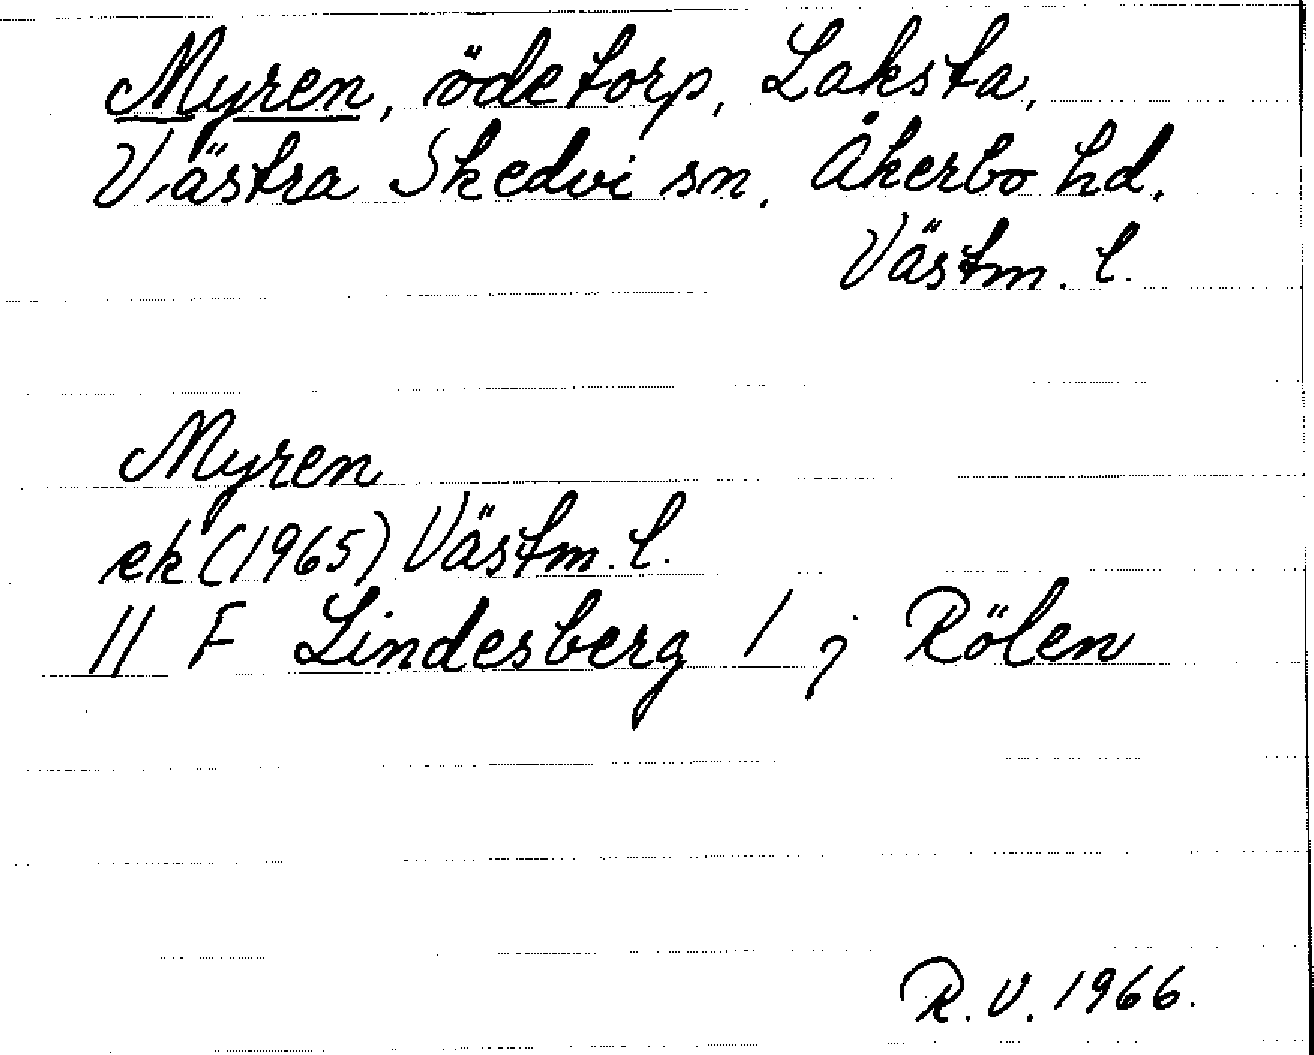 Myren, ödetorp, Laksta,
Västra Skedvi sn, Åkerbo hd.
Västm. l.
Myren
ek (1965) Västm. l.
11 F Lindesberg 1 j Rölen
R. V. 1966.